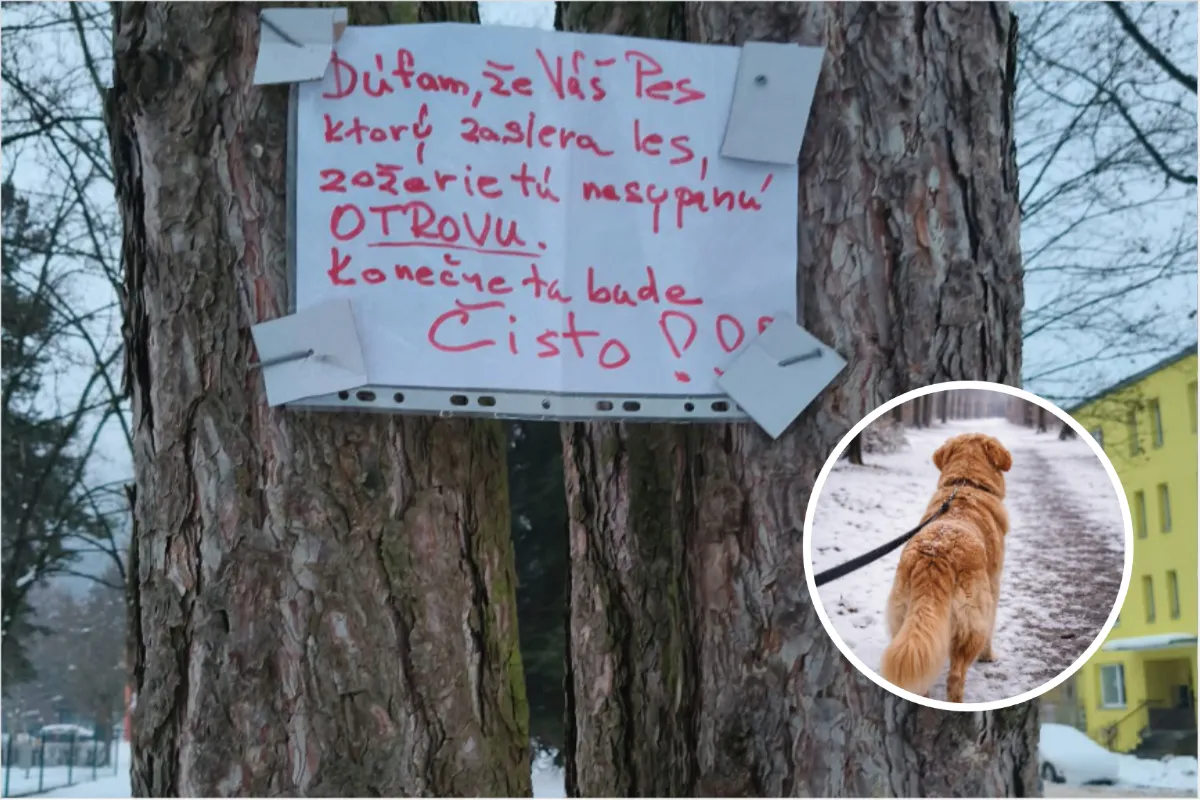 Dúfam, že Váš Pes
ktorý zasiera les,
zožerie tú nasypanú
OTROVU.
Konečne tu bude
Čisto !!!